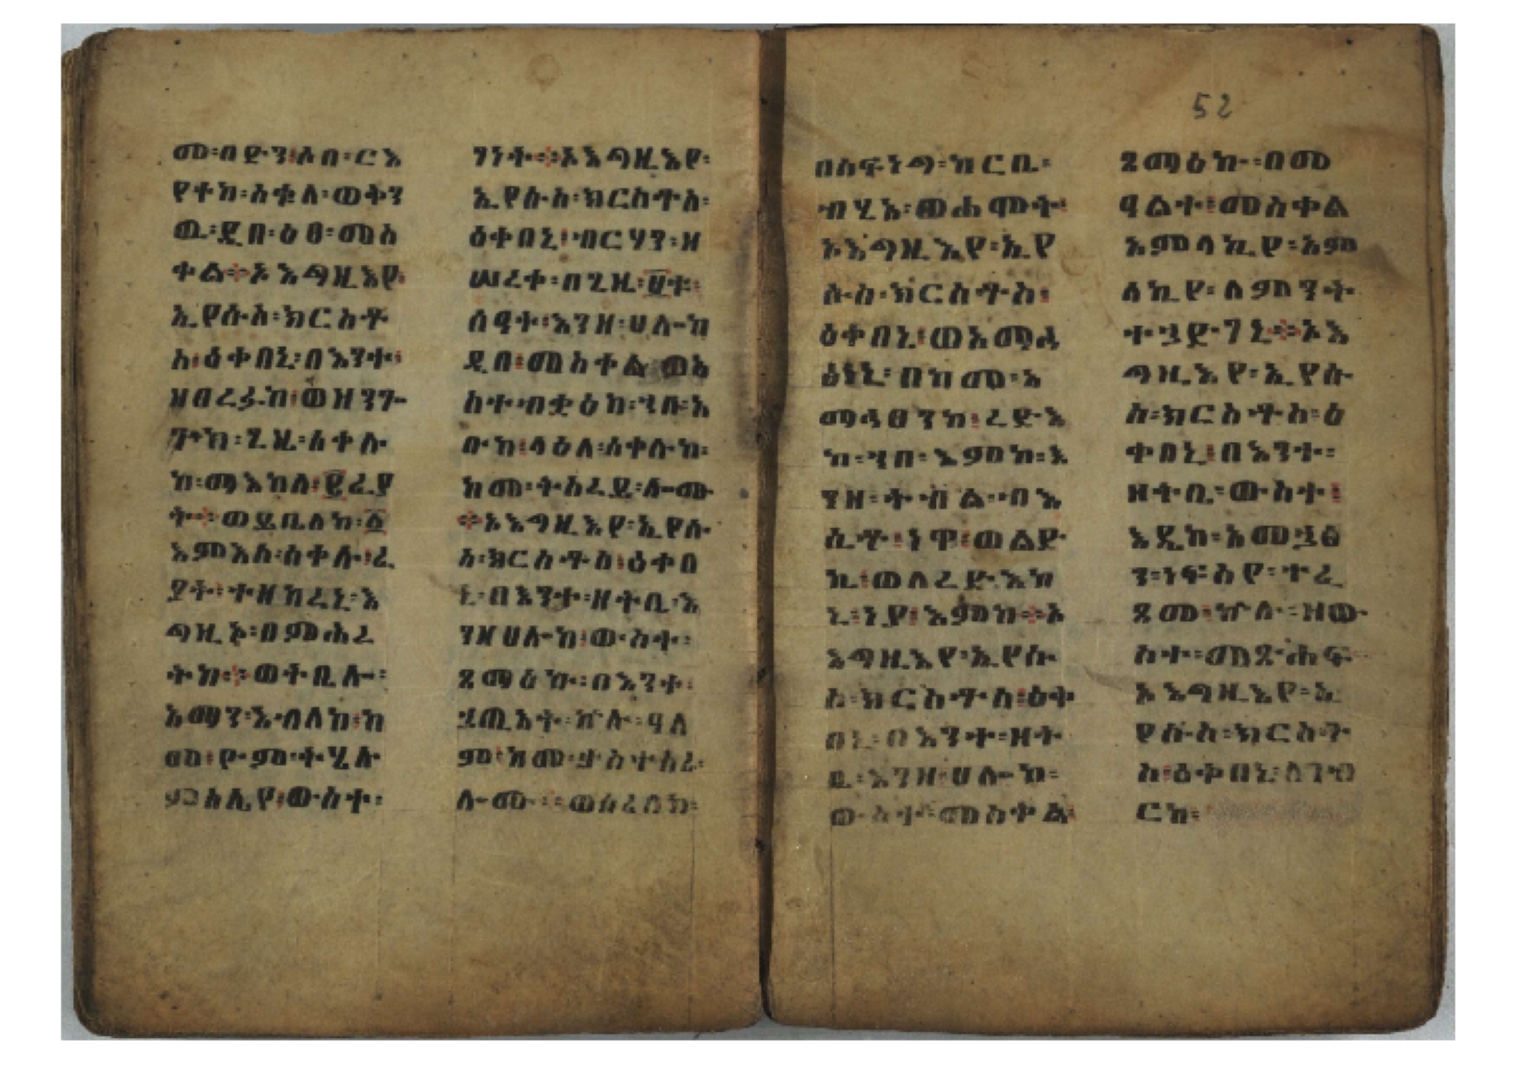 ሙ፡በድኅ፡ለበ፡ርእ
የተከ፡ስቁለ፡ወቅን
ዉ፡ዲበ፡ዕፀ፡መስ
ቀል፨ኦእግዚእየ፡
ኢየሱስ፡ክርስቶ
ስ፡ዕቀበኒ፡በእንተ፡
ዘፀረፉከ፡ወዘንጉ
ጕከ፡ጊዜ፡ሰቀሉ
ከ፡ማእከለ፡፪ፈያ
ት፨ወይቤለከ፡፩
እምእለ፡ስቀሉ፡ፈ
ያት፡ተዘከረኒ፡እ
ግዚኦ፡በምሕረ
ትከ፨ወትቤሎ፡
አማን፡እብለከ፡ከ
መ፡ዮም፡ትሄሉ
ምስሌየ፡ውስተ፡
ገነት፨ኦእግዚእየ፡
ኢየሱስ፡ክርስቶስ፡
ዕቀበኒ፡ብርሃን፡ዘ
ሠረቀ፡በጊዜ፡፱ቱ፡
ሰዓት፡እንዘ፡ሀሎከ
ዲበ፡መስቀል፡ወአ
ስተብቋዕከ፡ኀበ፡አ
ቡከ፡ላዕለ፡ሰቀሉከ፡
ከመ፡ትስረይ፡ሎሙ
፨ኦእግዚእየ፡ኢየሱ
ስ፡ክርስቶስ፡ዕቀበ
ኒ፡በእንተ፡ዘትቤ፡እ
ንዘ፡ሀሎከ፡ውስተ፡
ጸማዕኩ፡በእንተ፡
ኃጢአት፡ኵሉ፡ዓለ
ም፡ከመ፡ታስተስሪ፡
ሎሙ፡፡ወሰረሰከ፡
በስፍነግ፡ከርቤ፡
ብሂአ፡ወሐሞት፡
ኦእግዚእየ፡ኢየ
ሱስ፡ክርስቶስ፡
ዕቀበኒ፡ወአማኅ
ፅነኒ፡በከመ፡አ
ማኅፀንከ፡ረድእ
ከ፡ኀበ፡እምከ፡እ
ንዘ፡ትብል፡በእ
ሲቶ፡ነዋ፡ወልድ
ኪ፡ወለረድእከ
ኒ፡ነያ፡እምከ፨ኦ
እግዚእየ፡ኢየሱ
ስ፡ክርስቶስ፡ዕቀ
በኒ፡በእንተ፡ዘት
ቤ፡እንዘ፡ሀሎከ፡
ውስተ፡መስቀል፡
ጸማዕኩ፡በመ
ዓልተ፡መስቀል
አምላኪየ፡አም
ላኪየ፡ለምንት
ተኃድገኒ፨ኦእ
ግዚእየ፡ኢየሱ
ስ፡ክርስቶስ፡ዕ
ቀበኒ፡በእንተ፡
ዘትቤ፡ውስተ፡
እዴከ፡አመኃፅ
ን፡ነፍስየ፡ተፈ
ጸመ፡ኵሉ፡ዘው
ስተ፡መጽሐፍ
እግዚእየ፡ኢ
የሱስ፡ክርስቶ
ስ፡ዕቀበኒ፡ለገብ
ርከ፡
52